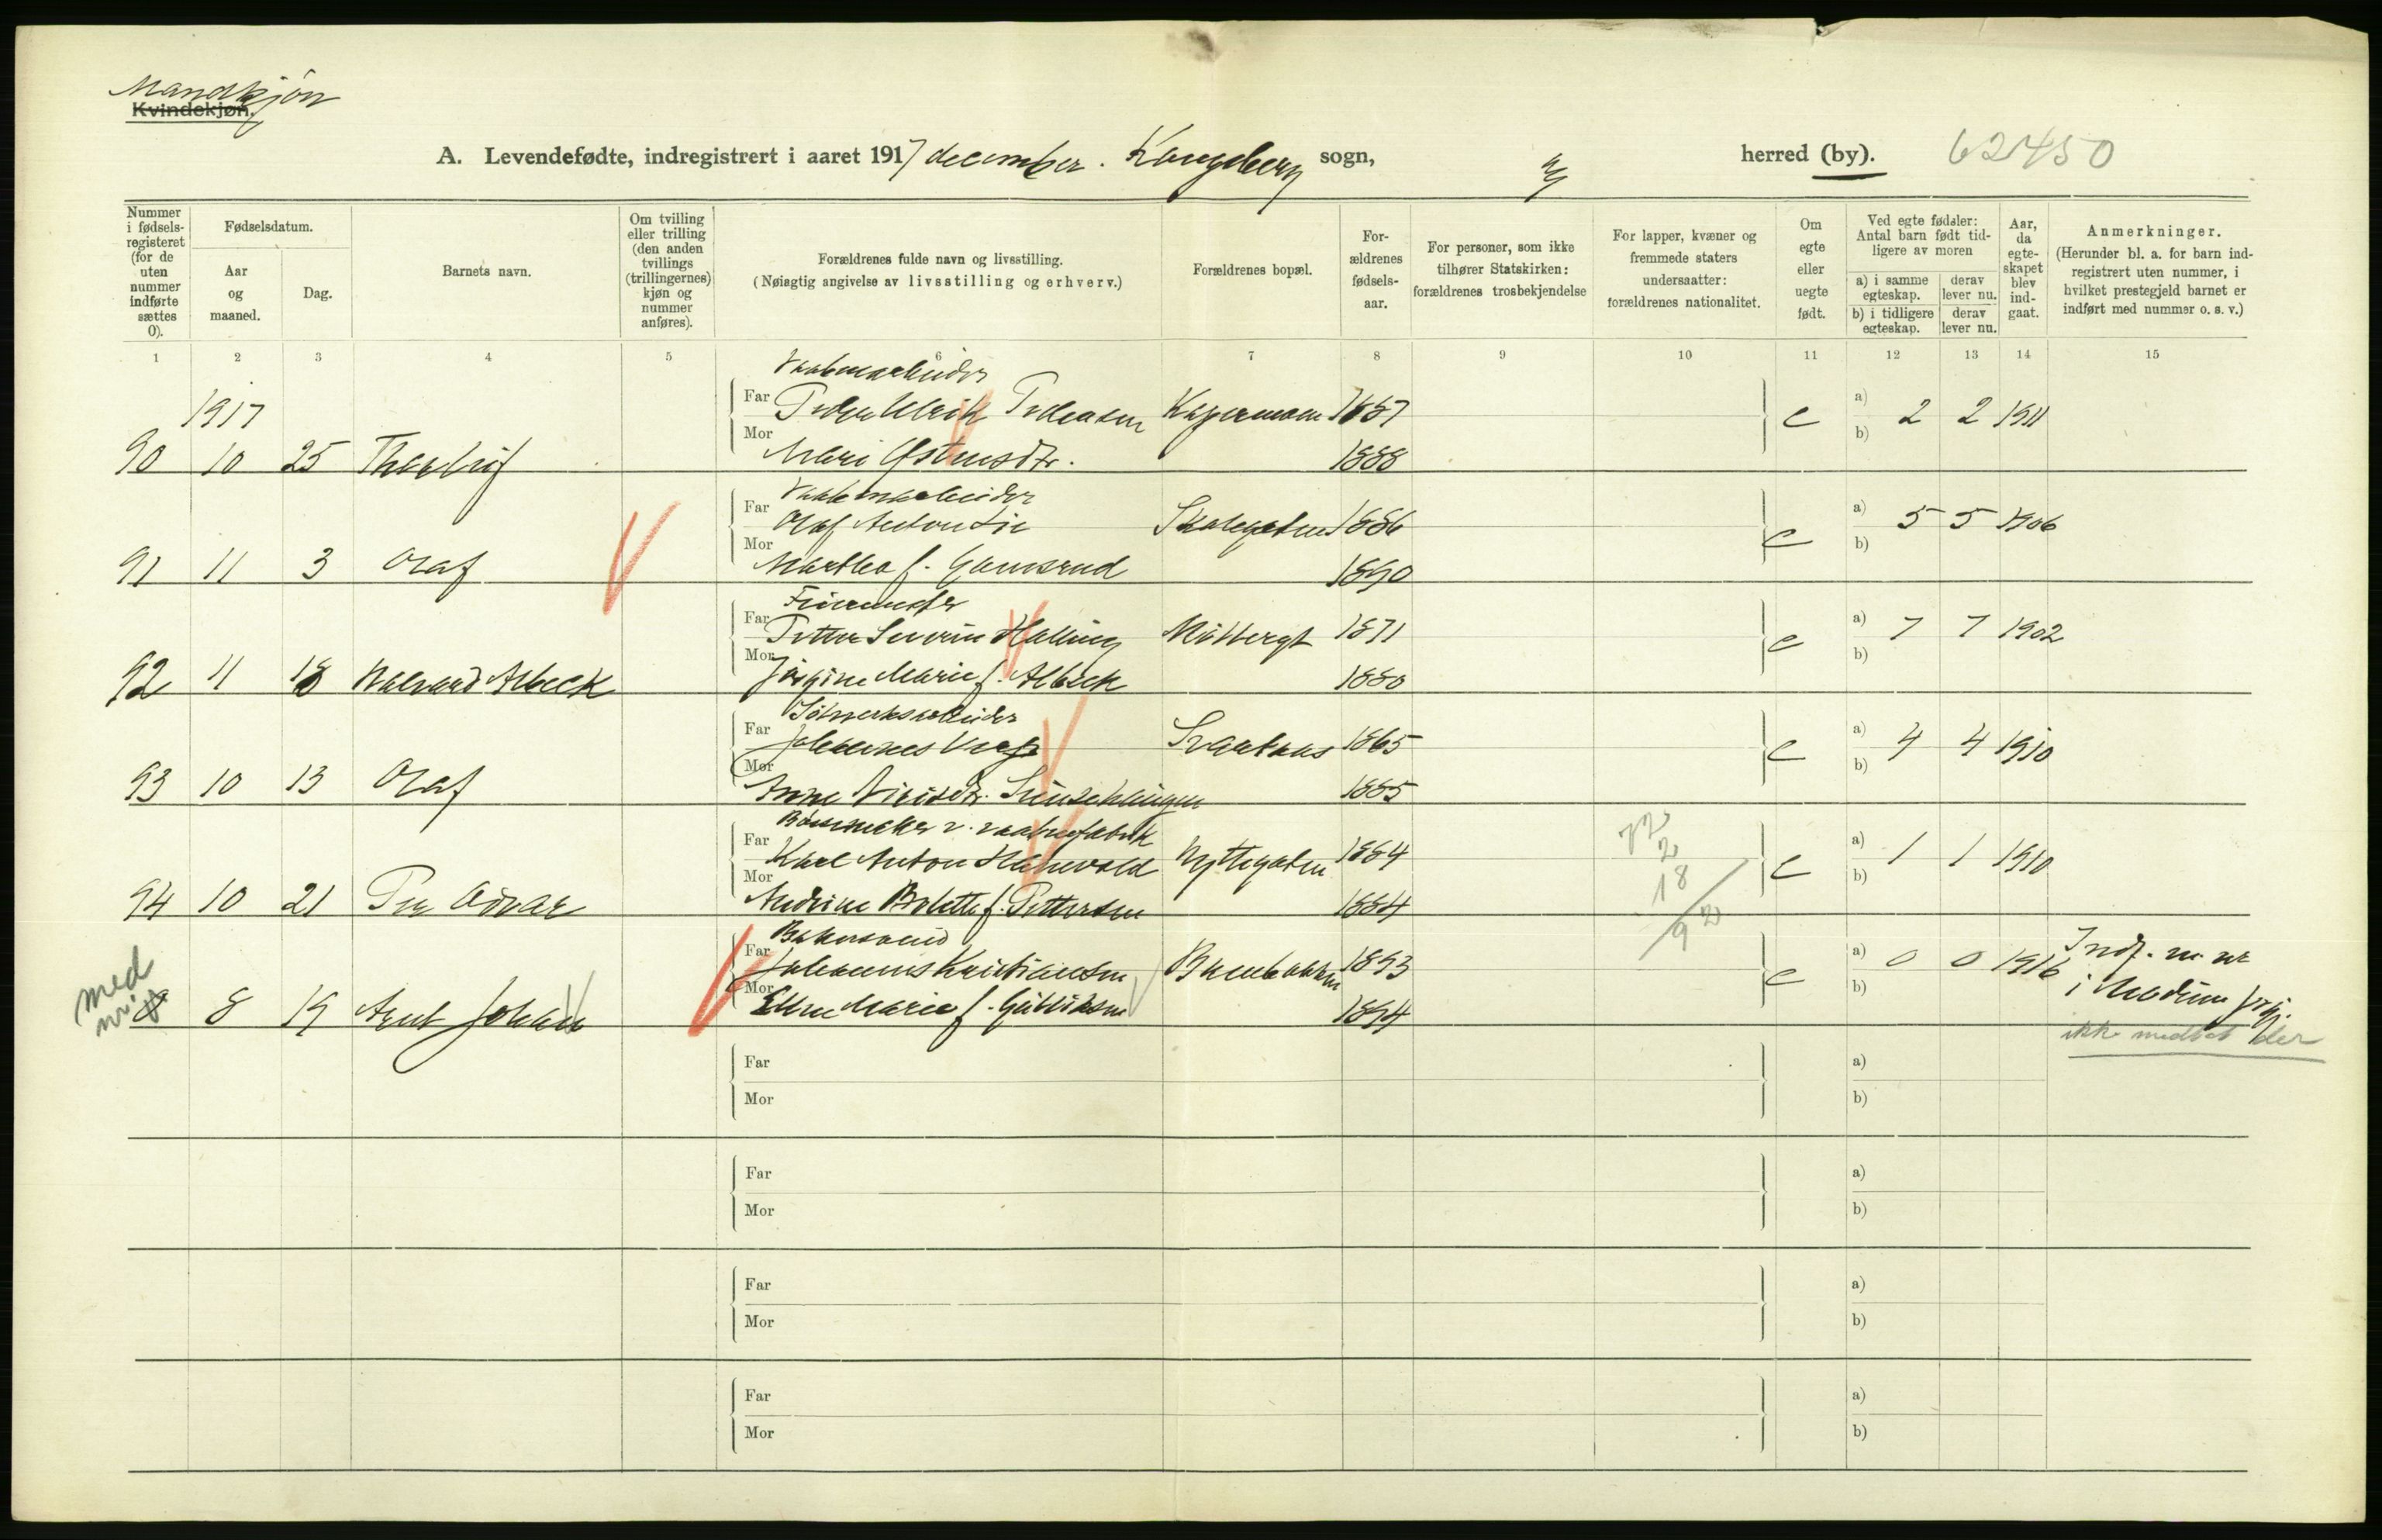 Mandkjøn
Kvindekjøn.
A. Levendefødte, indregistrert i aaret 1917 december. Kongsberg sogn, herred (by). 62450
Nummer i fødsels-registeret (for de uten nummer indførte sættes 0).
Fødselsdatum.
Aar og maaned.
Dag.
Barnets navn.
Om tvilling eller trilling (den anden tvillings (trillingernes) kjøn og nummer anføres).
Forældrenes fulde navn og livsstilling.
(Nøiagtig angivelse av livsstilling og erhverv.)
Forældrenes bopæl.
For-ældrenes fødsels-aar.
For personer, som ikke tilhører Statskirken: forældrenes trosbekjendelse
For lapper, kvæner og fremmede staters undersaatter: forældrenes nationalitet.
Om egte eller uegte født.
Ved egte fødsler: Antal barn født tid-ligere av moren
a) i samme egteskap. derav lever nu.
b) i tidligere egteskap. derav lever nu.
Aar, da egte-skapet blev ind-gaat.
Anmerkninger.
(Herunder bl. a. for barn ind-registrert uten nummer, i hvilket prestegjeld barnet er indført med nummer o. s. v.)
1 2 3 4 5 6 7 8 9 10 11 12 13 14 15
Vaabenarbeider
1917 Far Peder Ulrik Pedersen 1887 e a) 2 2 1911
Mor b)
90 10 25 Mari 1888
Vaabenarbeider
Far Olaf Anton Lie Skolegaten 1886 e a) 5 5 1906
Mor b)
91 11 3 Olaf Martha f. Gamsrud 1890
Far Petter Severin Halling 1871 e a) 7 7 1902
Mor b)
92 11 18 Halvard Albeck Jørgine Marie f. Albeck 1880
Sølvverksarbeider
Far Johannes 1865 e a) 4 4 1910
Mor b)
93 10 13 Olaf Anne 1885
Bøssemaker v. vaabenfabrik
Far Karl Anton Hyttegaten 1884 e a) 1 1 1910
Mor b)
94 10 21 Per Odvar Andrine Bolette f. Pettersen 1884
72
2
18
92
Bakersvend
Far Johannes Kristiansen 1893 e a) 0 0 1916 Indf. m. nr
Mor b) i Modum prgj.
med
0 8 19 Arnt Johan Ellen Marie f. 1894
ikke medtat der
Far a)
Mor b)
Far a)
Mor b)
Far a)
Mor b)
Far a)
Mor b)